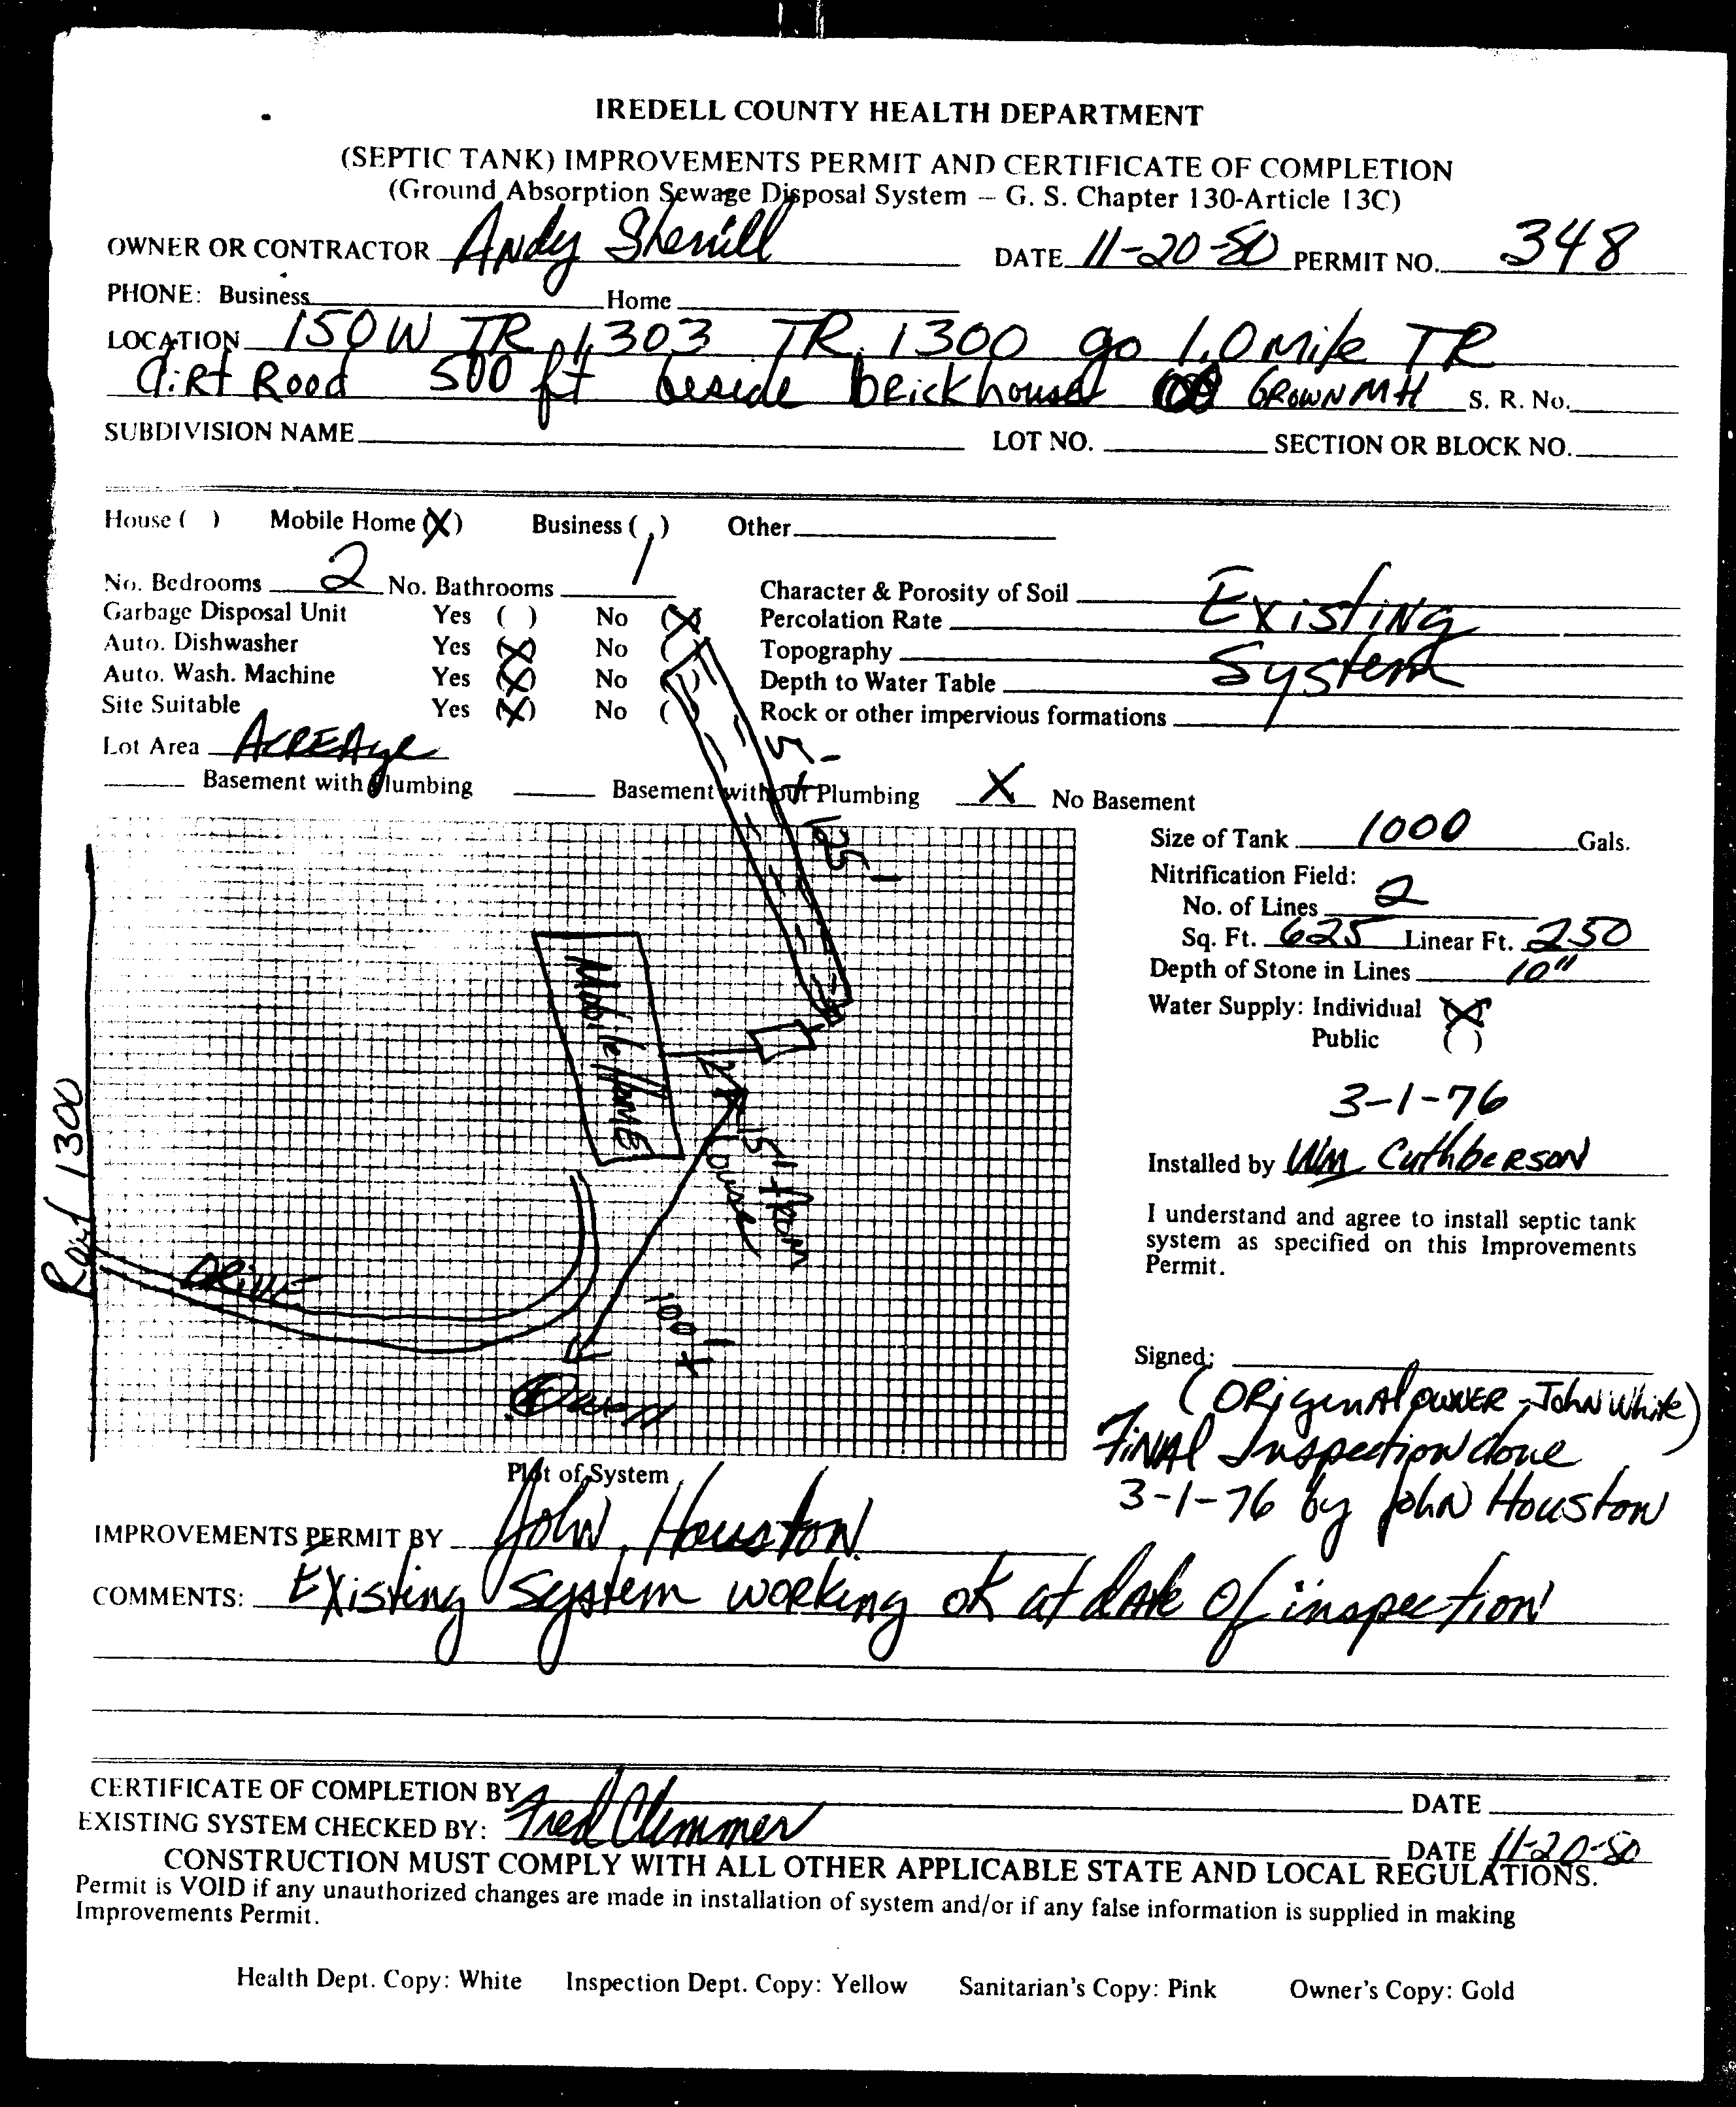 IREDELL COUNTY HEALTH DEPARTMENT
(SEPTIC TANK) IMPROVEMENTS PERMIT AND CERTIFICATE OF COMPLETION
(Ground Absorption Sewage Disposal System — G. S. Chapter 130-Article 13C)
OWNER OR CONTRACTOR Andy Sherrill DATE 11-20-80 PERMIT NO. 348
PHONE: Business Home
LOCATION 150 W TR 1303 TR. 1300 go 1.0 Mile TR
dirt Road 500 ft beside brick house BROWN MH S. R. No.
SUBDIVISION NAME LOT NO. SECTION OR BLOCK NO.
House ( ) Mobile Home (X) Business ( ) Other
No. Bedrooms 2 No. Bathrooms 1
Garbage Disposal Unit Yes ( ) No (X)
Auto. Dishwasher Yes (X) No ( )
Auto. Wash. Machine Yes (X) No ( )
Site Suitable Yes (X) No ( )
Character & Porosity of Soil Existing
Percolation Rate
Topography System
Depth to Water Table
Rock or other impervious formations
Lot Area ACREAge
Basement with Plumbing Basement without Plumbing X No Basement
5'+
125'
Mobile Home
15' from
house
100'+
DRIVE
Road 1300
Plot of System
Size of Tank 1000 Gals.
Nitrification Field:
No. of Lines 2
Sq. Ft. 625 Linear Ft. 250
Depth of Stone in Lines 10"
Water Supply: Individual (X)
Public ( )
3-1-76
Installed by Wm Cuthberson
I understand and agree to install septic tank
system as specified on this Improvements
Permit.
Signed:
(ORiginAl OWNER - John White)
FiNAl Inspection done
3-1-76 by John Houston
IMPROVEMENTS PERMIT BY John Houston
COMMENTS: Existing System working ok at date of inspection
CERTIFICATE OF COMPLETION BY DATE
EXISTING SYSTEM CHECKED BY: Fred Clemmer DATE 11-20-80
CONSTRUCTION MUST COMPLY WITH ALL OTHER APPLICABLE STATE AND LOCAL REGULATIONS.
Permit is VOID if any unauthorized changes are made in installation of system and/or if any false information is supplied in making
Improvements Permit.
Health Dept. Copy: White Inspection Dept. Copy: Yellow Sanitarian's Copy: Pink Owner's Copy: Gold